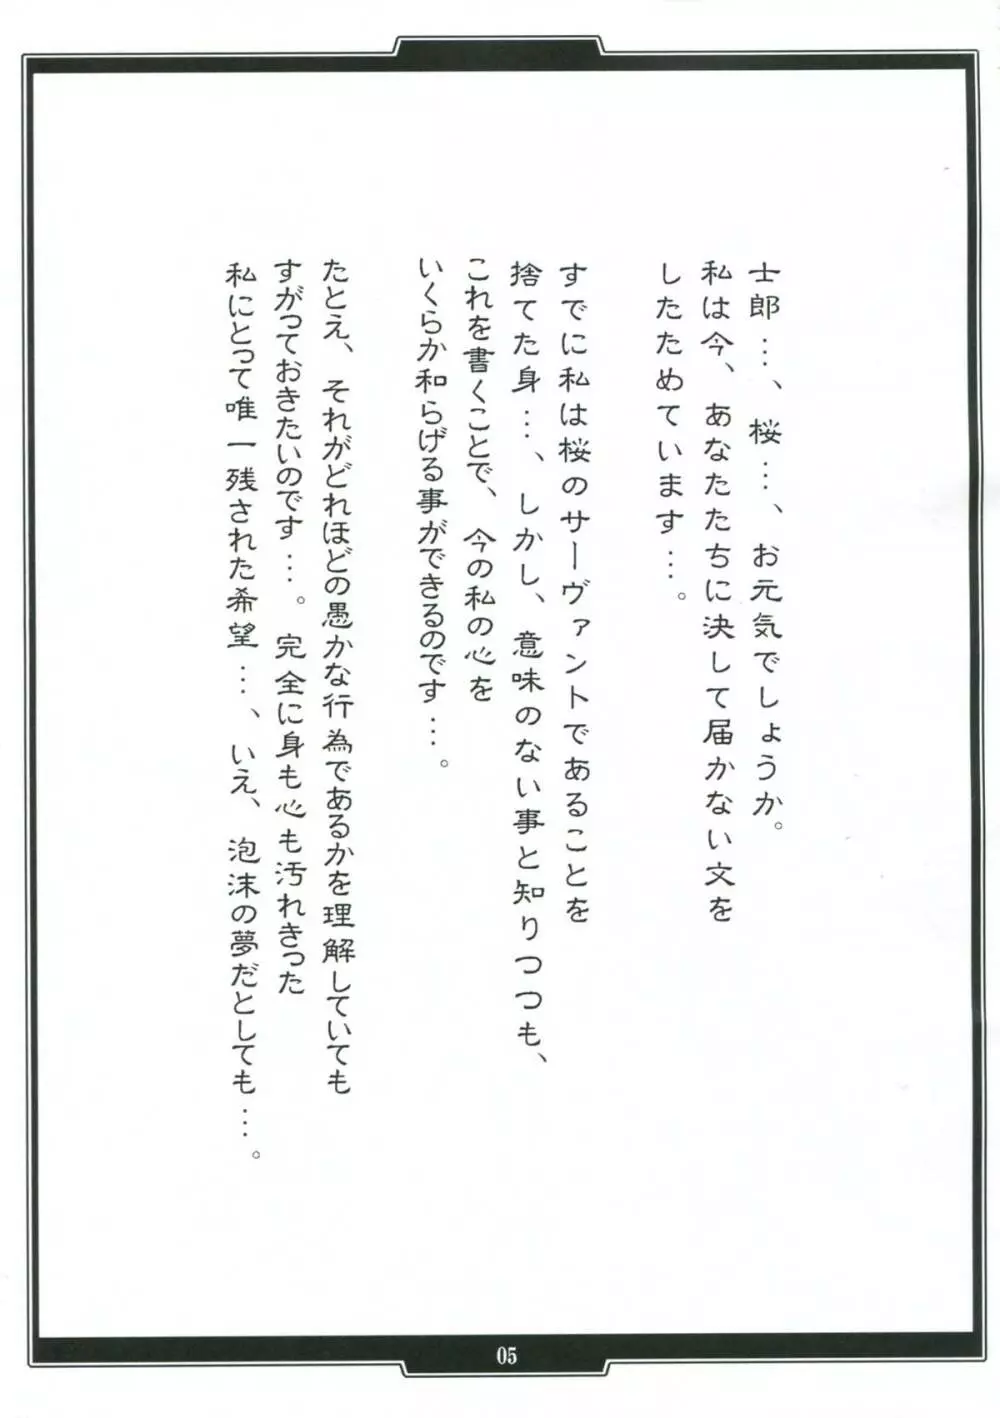 士郎…、桜…、お元気でしょうか。
私は今、あなたたちに決して届かない文を
したためています…。
すでに私は桜のサーヴァントであることを
捨てた身…、しかし、意味のない事と知りつつも、
これを書くことで、今の私の心を
いくらか和らげる事ができるのです…。
たとえ、それがどれほどの愚かな行為であるかを理解していても
すがっておきたいのです…。完全に身も心も汚れきった
私にとって唯一残された希望…、いえ、泡沫の夢だとしても…。
05